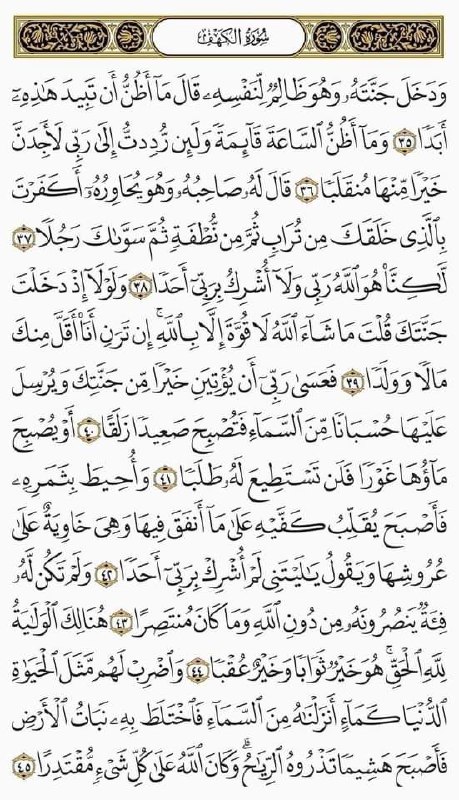 سُورَةُ الكَهۡفِ
وَدَخَلَ جَنَّتَهُۥ وَهُوَ ظَالِمٞ لِّنَفۡسِهِۦ قَالَ مَآ أَظُنُّ أَن تَبِيدَ هَٰذِهِۦٓ
أَبَدٗا ٣٥ وَمَآ أَظُنُّ ٱلسَّاعَةَ قَآئِمَةٗ وَلَئِن رُّدِدتُّ إِلَىٰ رَبِّي لَأَجِدَنَّ
خَيۡرٗا مِّنۡهَا مُنقَلَبٗا ٣٦ قَالَ لَهُۥ صَاحِبُهُۥ وَهُوَ يُحَاوِرُهُۥٓ أَكَفَرۡتَ
بِٱلَّذِي خَلَقَكَ مِن تُرَابٖ ثُمَّ مِن نُّطۡفَةٖ ثُمَّ سَوَّىٰكَ رَجُلٗا ٣٧
لَّٰكِنَّا۠ هُوَ ٱللَّهُ رَبِّي وَلَآ أُشۡرِكُ بِرَبِّيٓ أَحَدٗا ٣٨ وَلَوۡلَآ إِذۡ دَخَلۡتَ
جَنَّتَكَ قُلۡتَ مَا شَآءَ ٱللَّهُ لَا قُوَّةَ إِلَّا بِٱللَّهِۚ إِن تَرَنِ أَنَا۠ أَقَلَّ مِنكَ
مَالٗا وَوَلَدٗا ٣٩ فَعَسَىٰ رَبِّيٓ أَن يُؤۡتِيَنِ خَيۡرٗا مِّن جَنَّتِكَ وَيُرۡسِلَ
عَلَيۡهَا حُسۡبَانٗا مِّنَ ٱلسَّمَآءِ فَتُصۡبِحَ صَعِيدٗا زَلَقًا ٤٠ أَوۡ يُصۡبِحَ
مَآؤُهَا غَوۡرٗا فَلَن تَسۡتَطِيعَ لَهُۥ طَلَبٗا ٤١ وَأُحِيطَ بِثَمَرِهِۦ
فَأَصۡبَحَ يُقَلِّبُ كَفَّيۡهِ عَلَىٰ مَآ أَنفَقَ فِيهَا وَهِيَ خَاوِيَةٌ عَلَىٰ
عُرُوشِهَا وَيَقُولُ يَٰلَيۡتَنِي لَمۡ أُشۡرِكۡ بِرَبِّيٓ أَحَدٗا ٤٢ وَلَمۡ تَكُن لَّهُۥ
فِئَةٞ يَنصُرُونَهُۥ مِن دُونِ ٱللَّهِ وَمَا كَانَ مُنتَصِرًا ٤٣ هُنَالِكَ ٱلۡوَلَٰيَةُ
لِلَّهِ ٱلۡحَقِّۚ هُوَ خَيۡرٞ ثَوَابٗا وَخَيۡرٌ عُقۡبٗا ٤٤ وَٱضۡرِبۡ لَهُم مَّثَلَ ٱلۡحَيَوٰةِ
ٱلدُّنۡيَا كَمَآءٍ أَنزَلۡنَٰهُ مِنَ ٱلسَّمَآءِ فَٱخۡتَلَطَ بِهِۦ نَبَاتُ ٱلۡأَرۡضِ
فَأَصۡبَحَ هَشِيمٗا تَذۡرُوهُ ٱلرِّيَٰحُۗ وَكَانَ ٱللَّهُ عَلَىٰ كُلِّ شَيۡءٖ مُّقۡتَدِرًا ٤٥